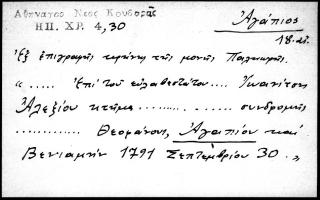 Αθηναγος Νεος Κουβαρᾶς
ΗΠ. ΧΡ. 4,30
Ἀγάπιος
18 αἰ.
Ἐξ ἐπιγραφῆς κρήνης τῆς μονῆς
"..... Ἐπὶ τοῦ εὐλαβεστάτου .... Ἰωαννίτση
Ἀλεξίου κτῆμα .......... συνδρομῆς
............ Θεοφάνους, Ἀγαπίου καὶ
Βενιαμὴν 1791 Σεπτεμβρίου 30 . "